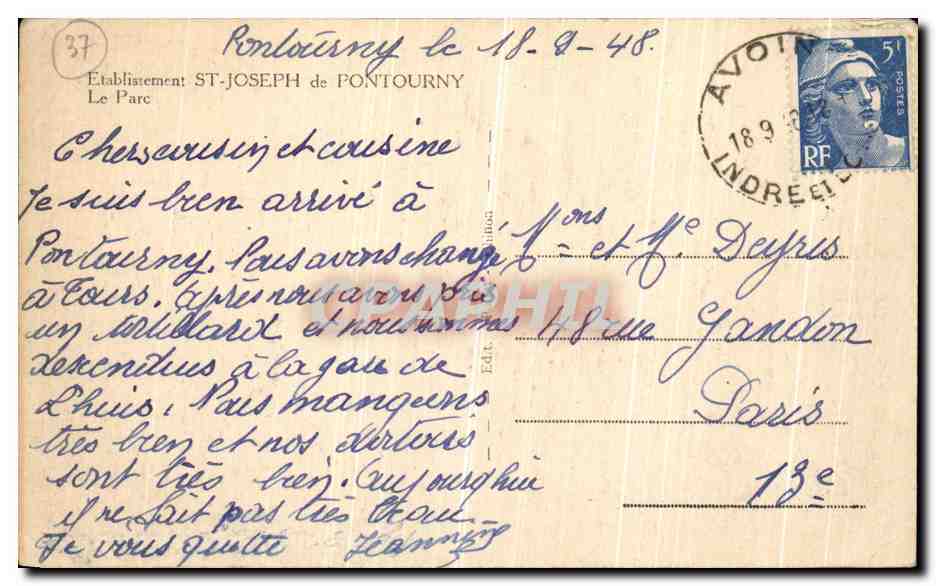 37
Pontourny le 18-9-48.
Etablissement ST-JOSEPH de PONTOURNY
Le Parc
Chers cousin et cousine
Je suis bien arrivé à
Pontourny. Nous avons changé
à Tours. après nous avons pris
un tortillard et nous sommes
descendus à la gare de
Nous mangeons
très bien et nos dortoirs
sont très bien. Aujourd'hui
il ne fait pas très beau
Je vous quitte Jeannine
Edit.
Mons et Me Deyres
48 rue Gandon
Paris
13e
AVOINE
18 9
INDRE ET
5F
POSTES
RF
CPARHTI